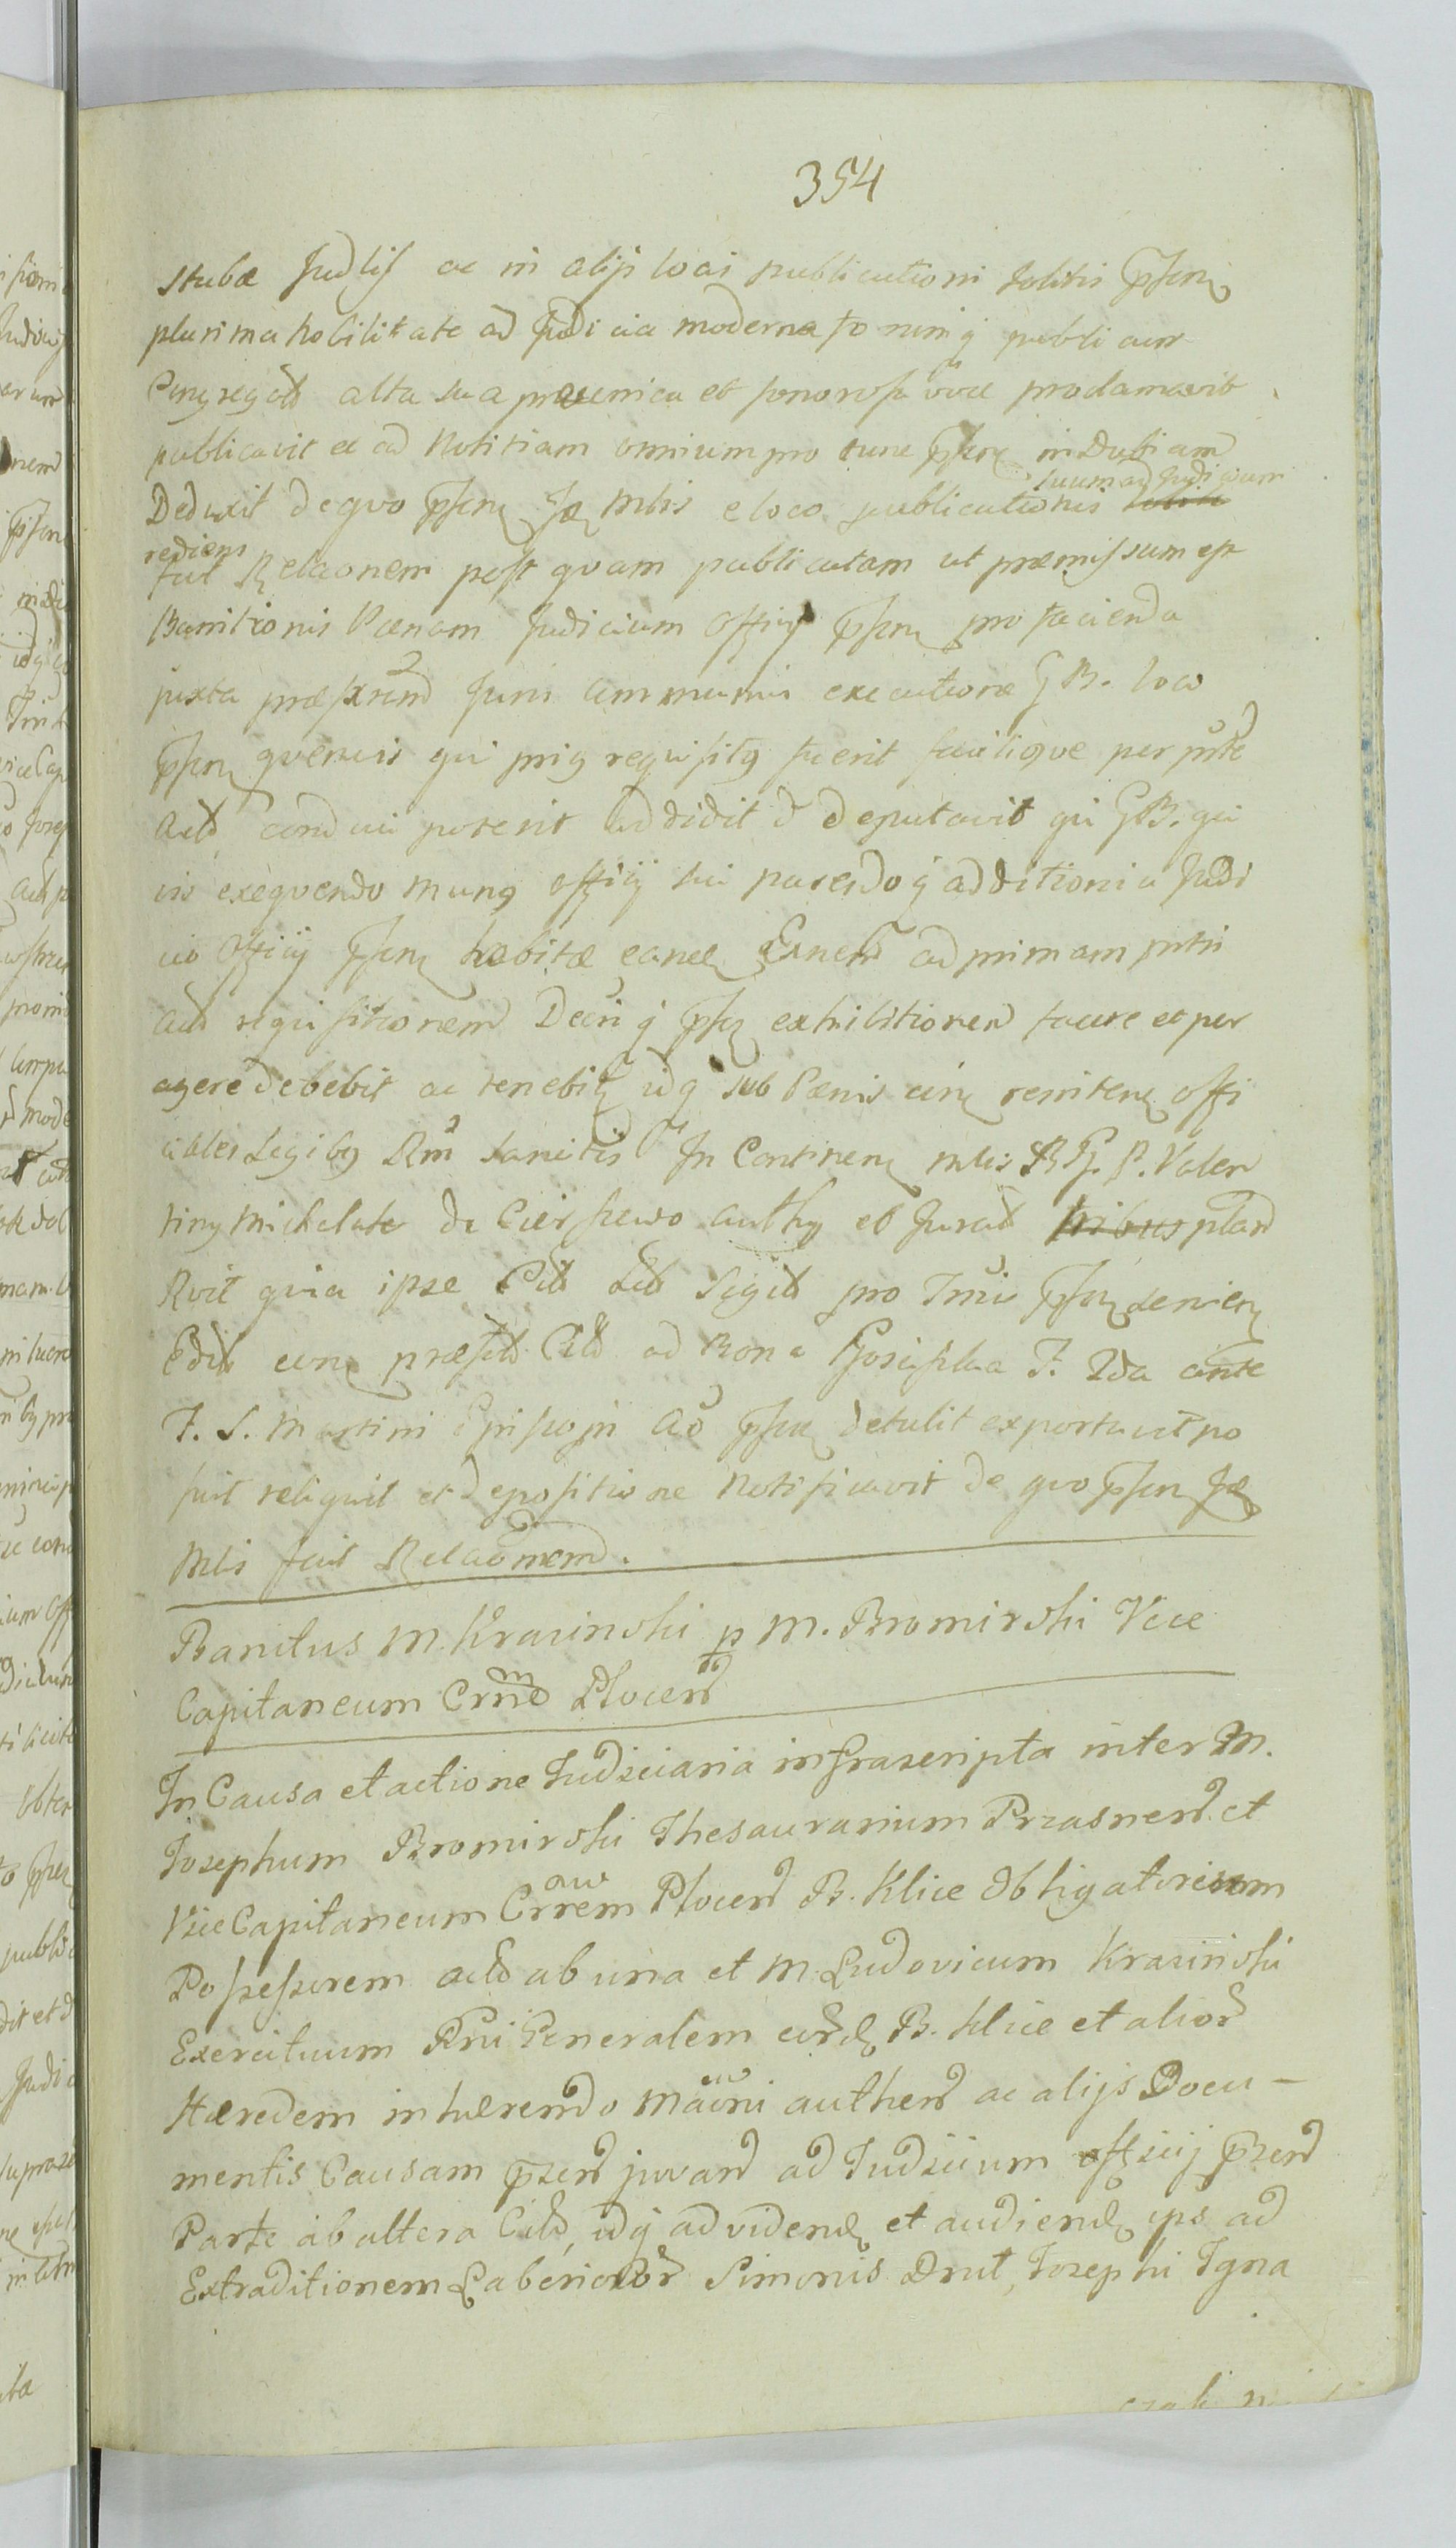 354
stubæ Judlis ac in alijs locis publicationi solitis pñsen
plurima Nobilitate ad Judicia moderna forumq publicum
Congregata alta sua præconica et sonorosa voce proclamavit
publicavit et ad Notitiam omnium pro tunc pñsen indubiam
Deduxit de quo pñsen Jæ Mlis e loco publicationis
suum ad Judicium
rediens
fecit Relaonem post quam publicatam ut præmissum est
Banitionis Pænam Judicium Officij pñsen pro facienda
juxta præscrum Juris communis executione GB. loco
pñsen quemvis qui prig requisitg fuerit faciliqve per pnte
Act conduci poterit addidit & deputavit qui GB. qui
vis exequendo Mung officij sui parendoq additioni a Judi
cio Officij pñsen habitæ eancd ad primam pntis
Act requisitionem Decriq pñs exhibitionem facere et per
agere debebit ac tenebit idq sub Pænis circa renitent offi
ciales Legibg Rni sancitis In Continen Mlis P. Valen
ting Michelate de Cierszewo authg et Jurat tribus pland
Rvit quia ipse Citt Litt Legitt pro Tmis pñsen
Edit cone præfatt Citt ad Bona F. 2da ante
F. S. Martini Episcopi Ao pñsen detulit exportavit po
suit reliquit et depositione Notificavit de quo pñsen Jæ
Mlis fecit Relaonem.
Banitus M. Krasinski p M. Bromirski Vice
Capitaneum Crnem Plocen
In Causa et actione Judiciaria infrascripta inter M.
Josephum Bromirski Thesaurarium Przasnen. et
Vice Capitaneum Crnem Plocen B. Klice Obligatorium
Possessorem act ab una et M. Ludovicum Krasinski
Exercituum Rni Generalem eord B. Klice et alior
Hæredem inhærendo Mãoni authen ac alijs Docu-
mentis Causam pñsen juvan ad Judicium officij pñsen
Parte ab altera Citt, idq ad videnđ et audienđ ips ad
Extraditionem Laborior Simonis Drut, Josephi Igna